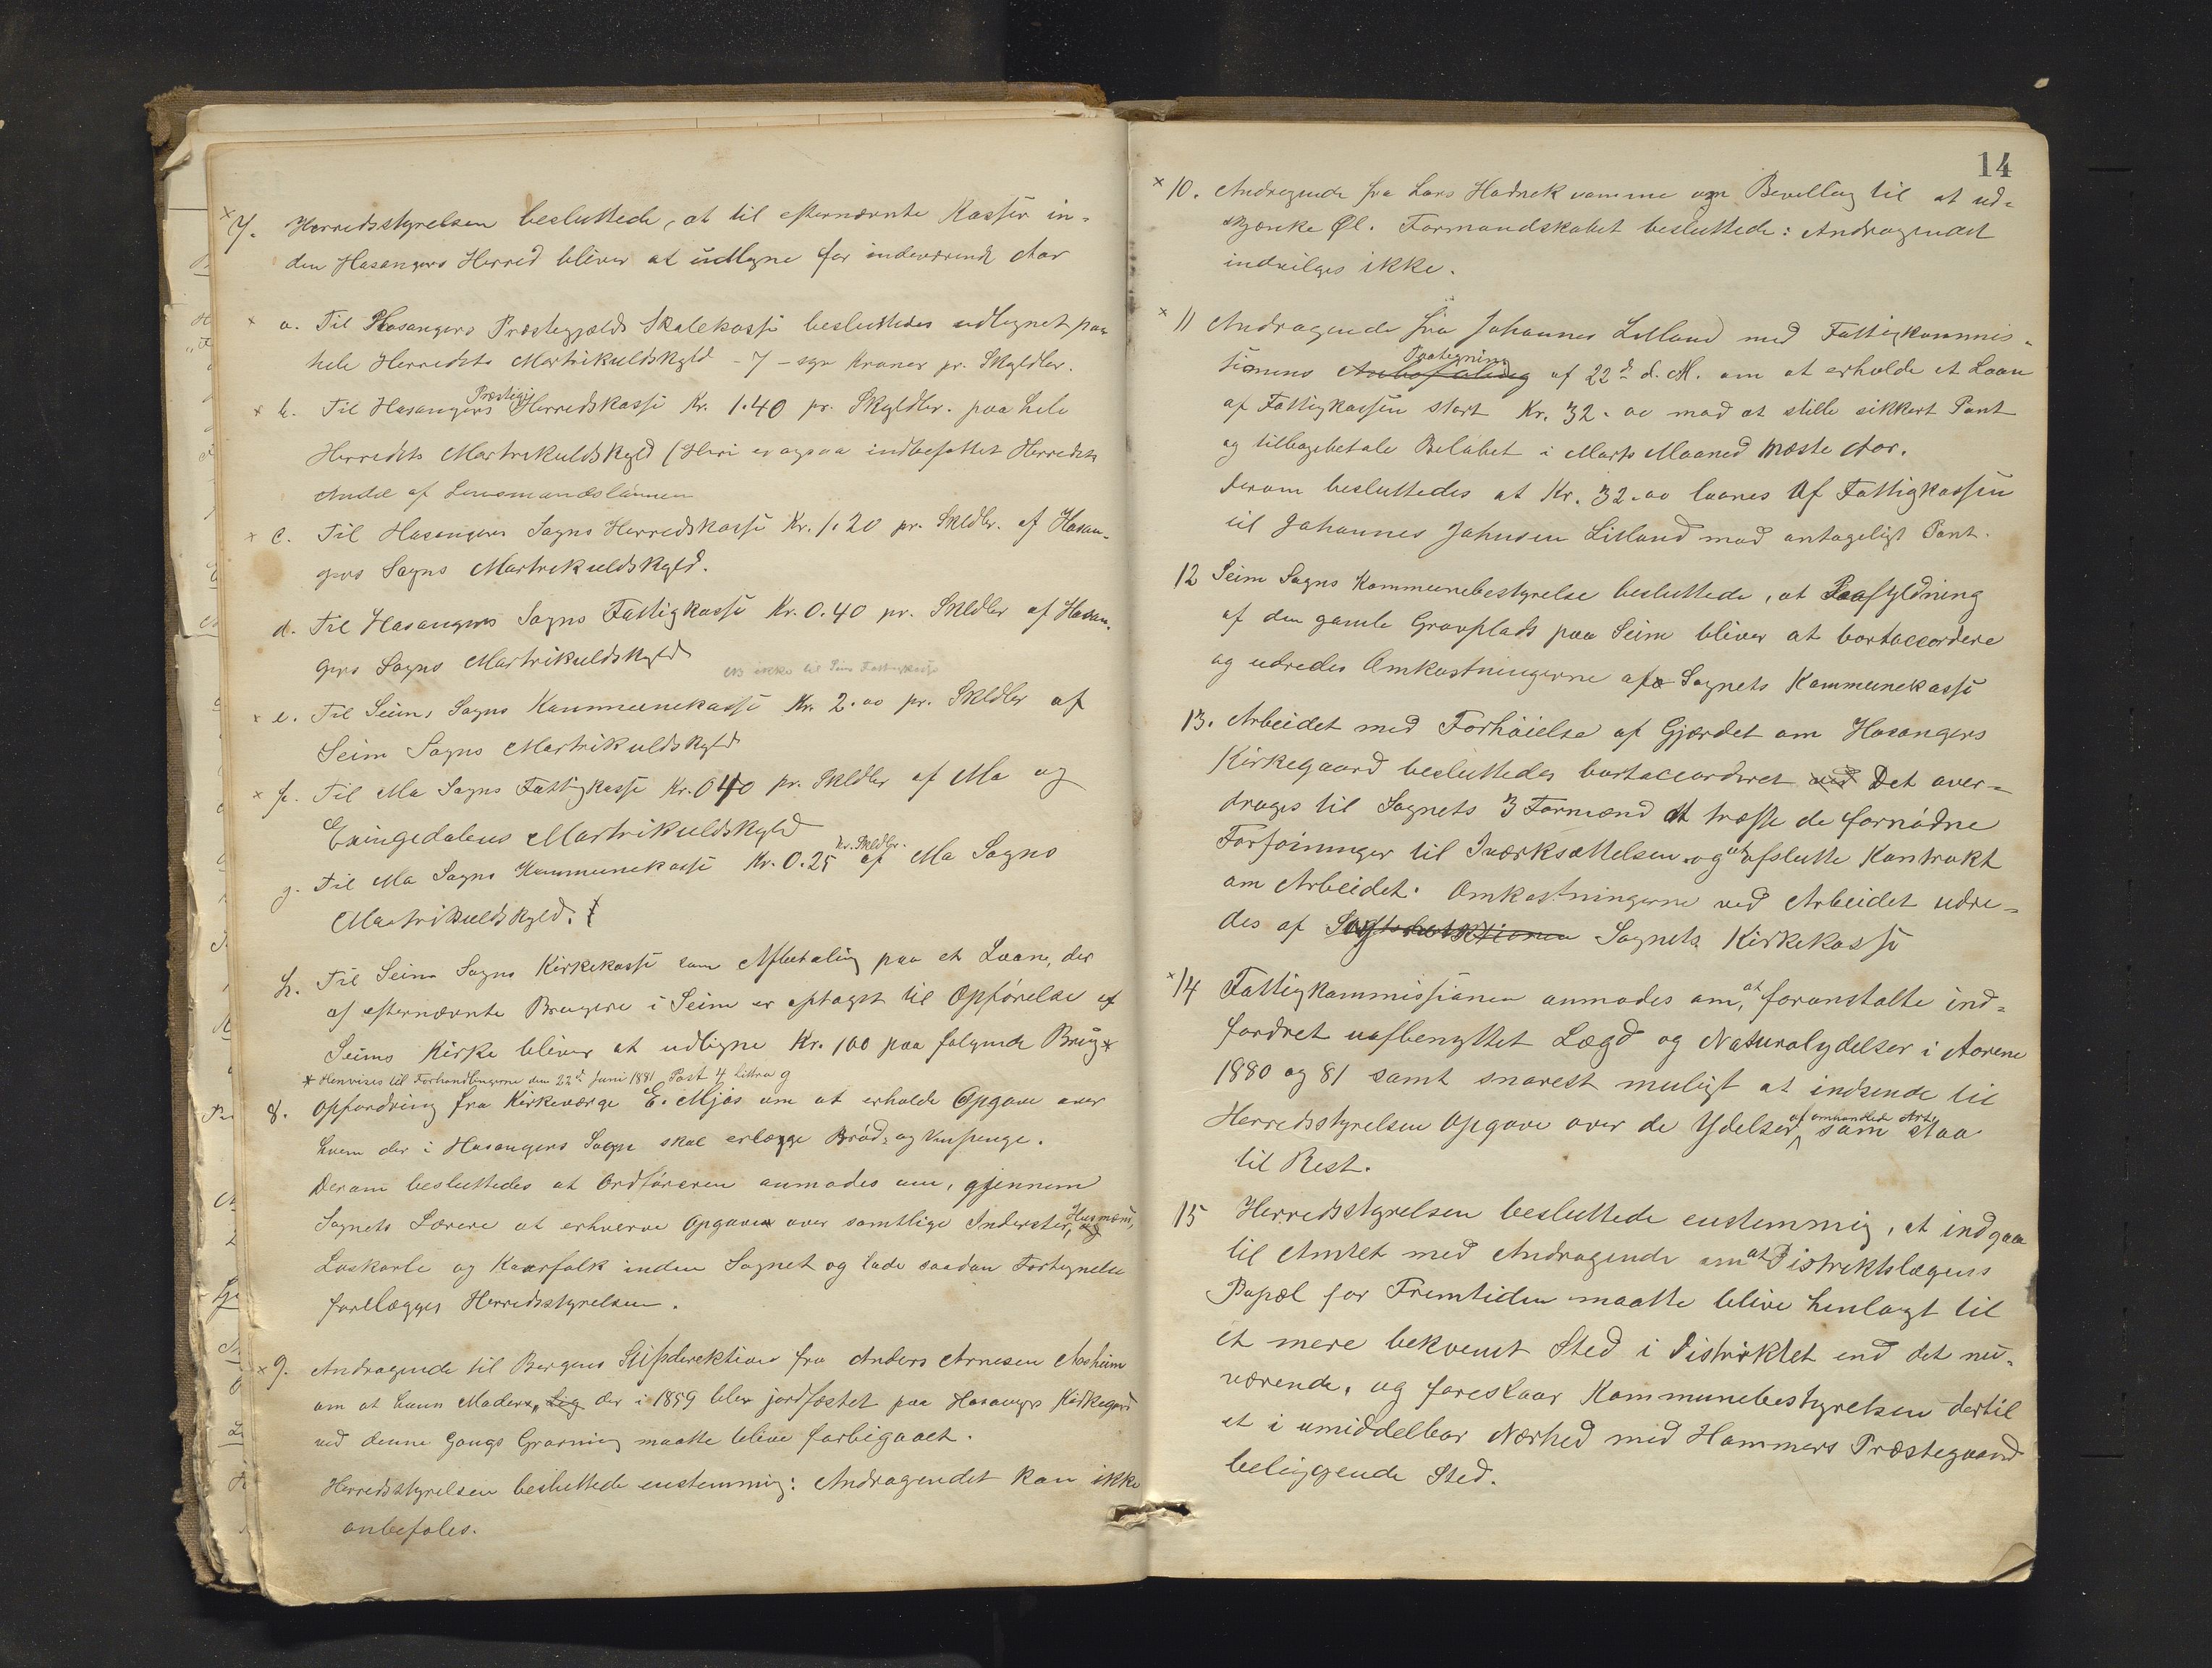 × 7. Herredsstyrelsen besluttede, at til efternævnte Kasser in-
den Hosangers Herred bliver at udligne for indeværende Aar
× a. Til Hosangers Præstegjælds Skolekasse besluttedes udlignet paa
hele Herredets Martrikulskyld - 7 - syv Kroner pr. Skyldlr.
× b. Til Hosangers Præstegjs Herredskasse Kr. 1.40 pr. Skyldlr. paa hele
Herredets Martrikuldskyld (Heri er ogsaa indbefattet Herredets
Andel af Lensmandslønnen
× c. Til Hosangers Sogns Herredskasse Kr. 1.20 pr. Skldlr. af Hosan-
gers Sogns Martrikuldskyld.
d. Til Hosangers Sogns Fattigkasse Kr. 0.40 pr. Skldlr af Hosan-
gers Sogns Martrikuldskyld
NB ikke til Seim Fattigkasse
× e. Til Seims Sogns Kommunekasse Kr. 2.00 pr. Skldlr af
Seim Sogns Martrikuldskyld
× f. Til Mo Sogns Fattigkasse Kr. 040 pr. Skldlr af Mo og
Exingedalens Martrikuldskyld
g. Til Mo Sogns Kommunekasse Kr. 0.25 pr. Skldlr. af Mo Sogns
Martrikuldskyld.
h. Til Seims Sogns Kirkekasse som Afbetaling paa et Laan, der
af efternævnte Brugere i Seim er optaget til Opførelse af
Seims Kirke bliver at udligne Kr. 100 paa følgende Brug *
* Henvises til Forhandlingerne den 22de Juni 1881 Post 4 Littra g
8. Opfordring fra Kirkeværge E. Mjøs om at erholde Opgave over
hvem der i Hosangers Sogn skal erlægge Brød- og Vinpenge.
Derom besluttedes at Ordføreren anmodes om, gjennem
Sognets Lærere at erhverve Opgave over samtlige Inderster, Husmænd, og
Løskarle og Kaarfolk inden Sognet og lade saadan Fortegnelse
forelægges Herredsstyrelsen.
× 9. Andragende til Bergens Stiftsdirektion fra Anders Arnesen Aasheim
om at hans Moders Lig der i 1859 blev jordfæstet paa Hosangers Kirkegaard
ved denne Gangs Gravning maatte blive forbigaaet.
Herredsstyrelsen besluttede enstemmig: Andragendet kan ikke
anbefales.
14
× 10. Andragende fra Lars Hodnekvamme om Bevilling til at ud-
skjænke Øl. Formandskabet besluttede: Andragendet
indvilges ikke.
× 11 Andragende fra Johannes Lilland med Fattigkommis-
sionens Anbefaling Paategning af 22de d. M. om at erholde et Laan
af Fattigkassen stort Kr. 32.00 mod at stille sikkert Pant
og tilbagebetale Beløbet i Marts Maaned næste Aar.
Derom besluttedes at Kr. 32.00 laanes af Fattigkassen
til Johannes Johnsen Lilland mod antageligt Pant.
12 Seim Sogns Kommunebestyrelse besluttede, at Paafyldning
af den gamle Gravplads paa Seim bliver at bortaccordere
og udredes Omkostningerne af Sognets Kommunekasse
13. Arbeidet med Forhøielse af Gjærdet om Hosangers
Kirkegaard besluttedes bortaccorderet ved Det over-
drages til Sognets 3 Formænd at træffe de fornødne
Forføininger til Iværksættelsen og at afslutte Kontrakt
om Arbeidet. Omkostningerne ved Arbeidet udre-
des af Sognets Kirkekasse
× 14 Fattigkommissionen anmodes om, at foranstalte ind-
fordret uafbenyttet Lægd og Naturalydelser i Aarene
1880 og 81 samt snarest muligt at indsende til
Herredsstyrelsen Opgave over de Ydelser af omhandlede Art, som staa
til Rest.
15 Herredsstyrelsen besluttede enstemmig, at indgaa
til Amtet med Andragende om at Distriktslægens
Bopæl for Fremtiden maatte blive henlagt til
et mere bekvemt Sted i Distriktet end det nu-
værende, og foreslaar Kommunebestyrelsen dertil
et i umiddelbar Nærhed med Hammers Præstegaard
beliggende Sted.